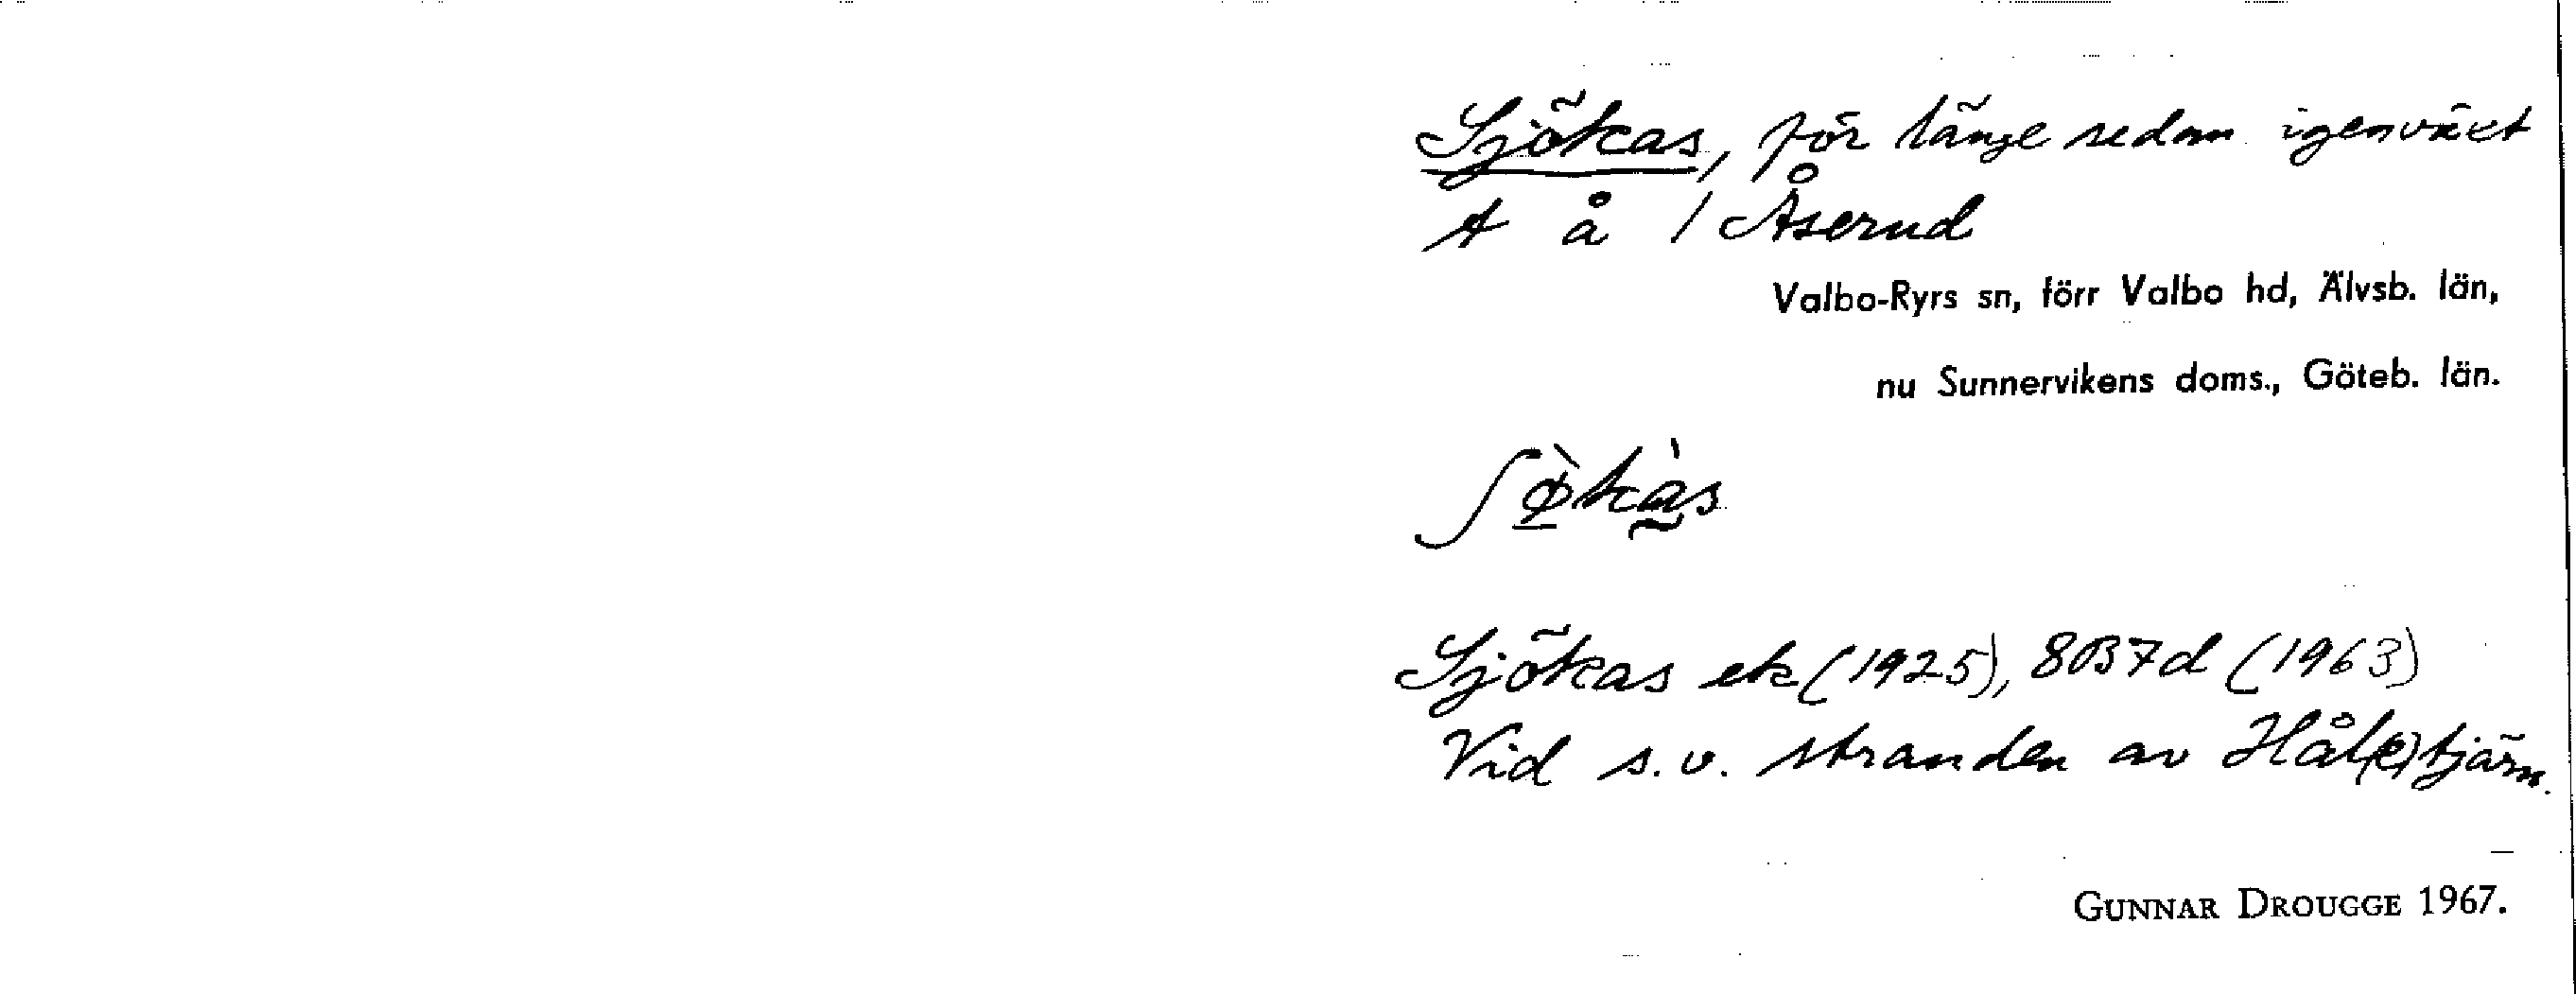 Sjökas, för länge sedan igenväxt
t å 1 Åserud
Valbo-Ryrs sn, förr Valbo hd, Älvsb. län,
nu Sunnervikens doms., Göteb. län.
ʃø̀kàs
Sjökas ek (1925), 8B7d (1963)
Vid s.v. stranden av Hål(e)tjärn.
GUNNAR DROUGGE 1967.